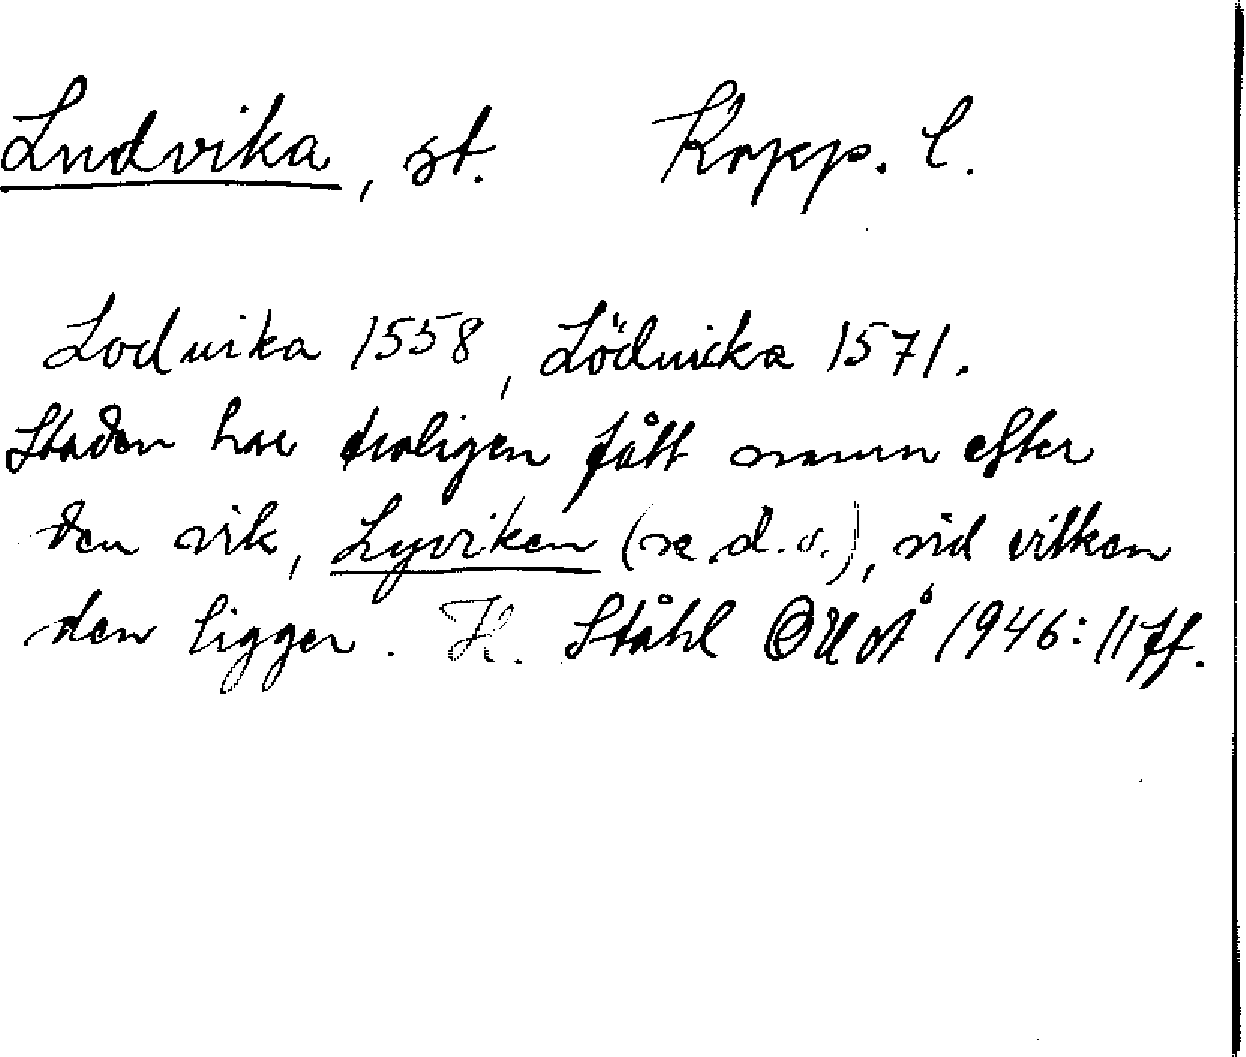 Ludvika, st. Kopp. l.
Lodvika 1558, Lödwicka 1571.
Staden har troligen fått namn efter
den vik, Lyviken (se d. o.), vid vilken
den ligger. H. Ståhl OUÅ 1946: 11 ff.